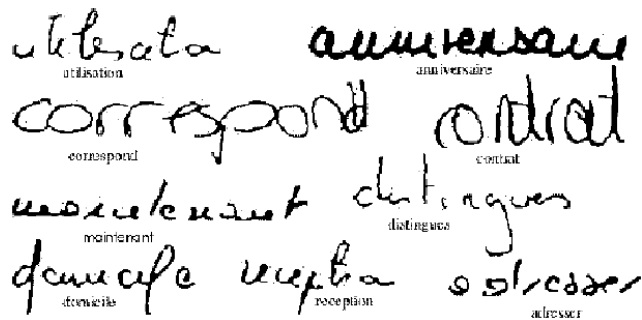 utilisation anniversaire
utilisation anniversaire
correspond contrat
correspond contrat
maintenant distingues
maintenant distingues
domicile reception adresser
domicile reception adresser